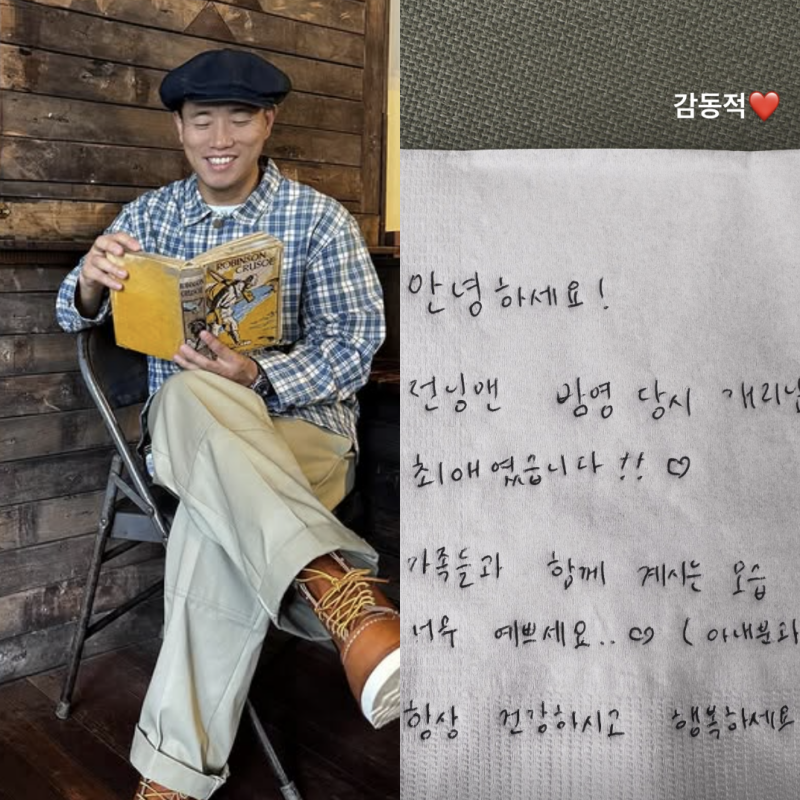 ROBINSON
CRUSOE
ROBINSON
CRUSOE
감동적❤️
안녕하세요!
런닝맨 방영 당시 개리님
최애였습니다!! ♡
가족들과 함께 계시는 모습
너무 예쁘세요..♡ (아내분과
항상 건강하시고 행복하세요